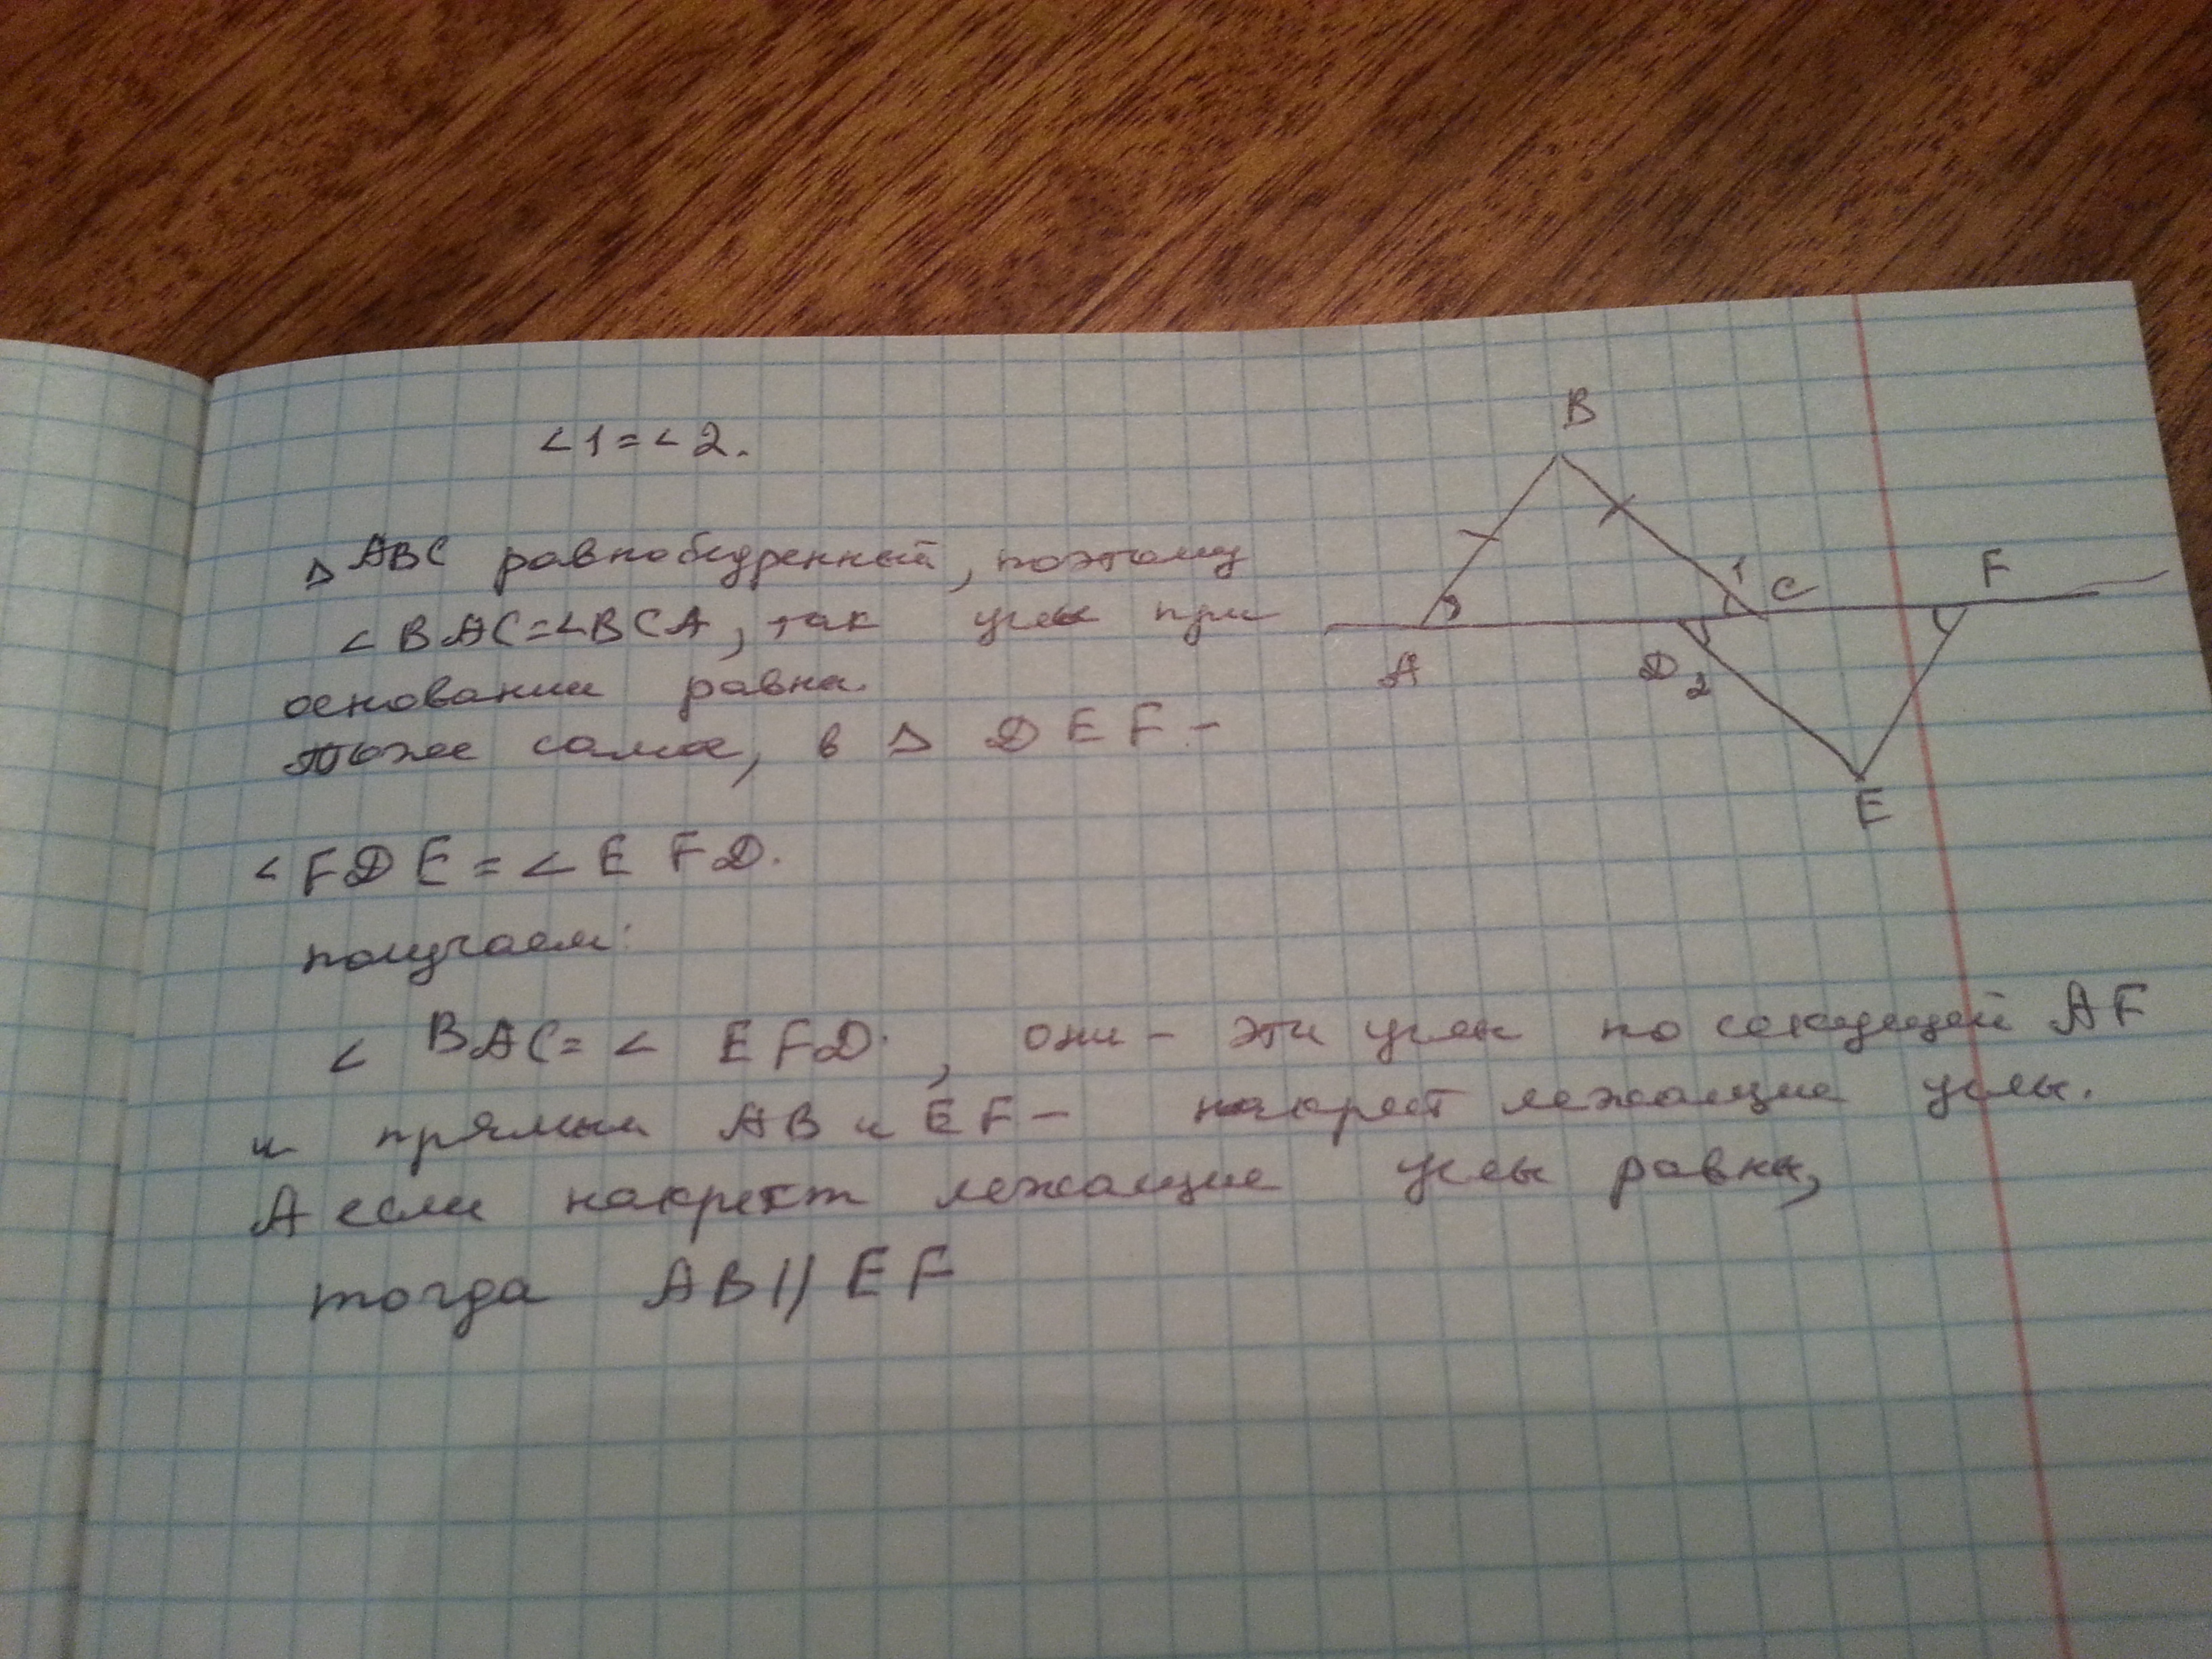 ∠1=∠2.
△ABC равнобедренный, поэтому
∠BAC=∠BCA, так углы при
основании равны.
тоже самое, в △ DEF-
∠FDE=∠EFD.
получаем:
∠ BAC=∠ EFD, они - эти углы по секущей AF
и прямым AB и EF- накрест лежащие углы.
А если накрест лежащие углы равны,
тогда AB||EF
B
1
C
F
A
D
2
E